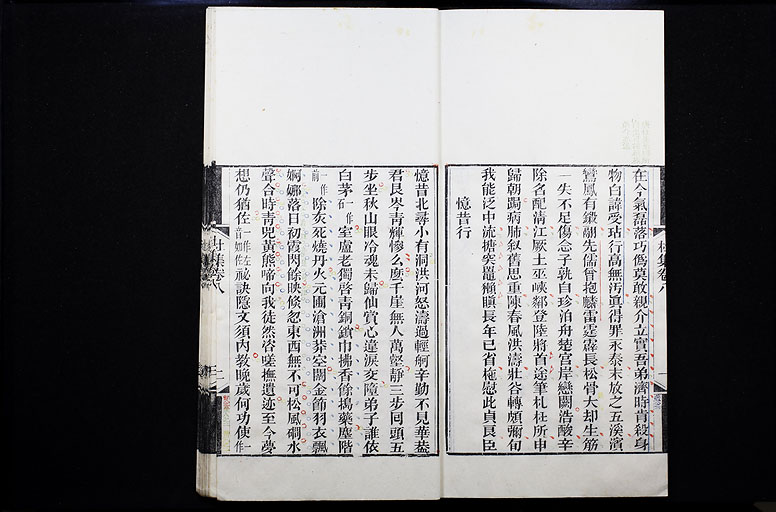 在今氣磊落巧僞莫敢親介立實吾弟濟時肯殺身
物白諱受玷行高無汚真得罪永泰末放之五溪濱
鸞鳳有鎩翮先儒曾抱麟雷霆霹長松骨大却生筋
一失不足傷念子孰自珍泊舟楚宮岸戀闕浩酸辛
除名配清江厥土巫峽鄰登陸將首途筆札枉所申
歸朝跼病肺叙舊思重陳春風洪濤壯谷轉頗彌旬
我能泛中流搪突鼉獺瞋長年已省柁慰此貞良臣
憶昔行
憶昔北尋小有洞洪河怒濤過輕舸辛勤不見華蓋
君艮岑青輝慘么麽千崖無人萬壑靜三步回頭五
步坐秋山眼冷魂未歸仙賞心違淚交墮弟子誰依
白茅一作石室盧老獨啓青銅鎖巾拂香餘搗藥塵階
一作前除灰死燒丹火元圃滄洲莽空闊金節羽衣飄
婀娜落日初霞閃餘映倏忽東西無不可松風磵水
聲合時青兕黃熊啼向我徒然咨嗟撫遺迹至今夢
想仍猶佐一作左音如佐祕訣隱文須內教晚歲何功使一作
杜集卷八
杜集卷八